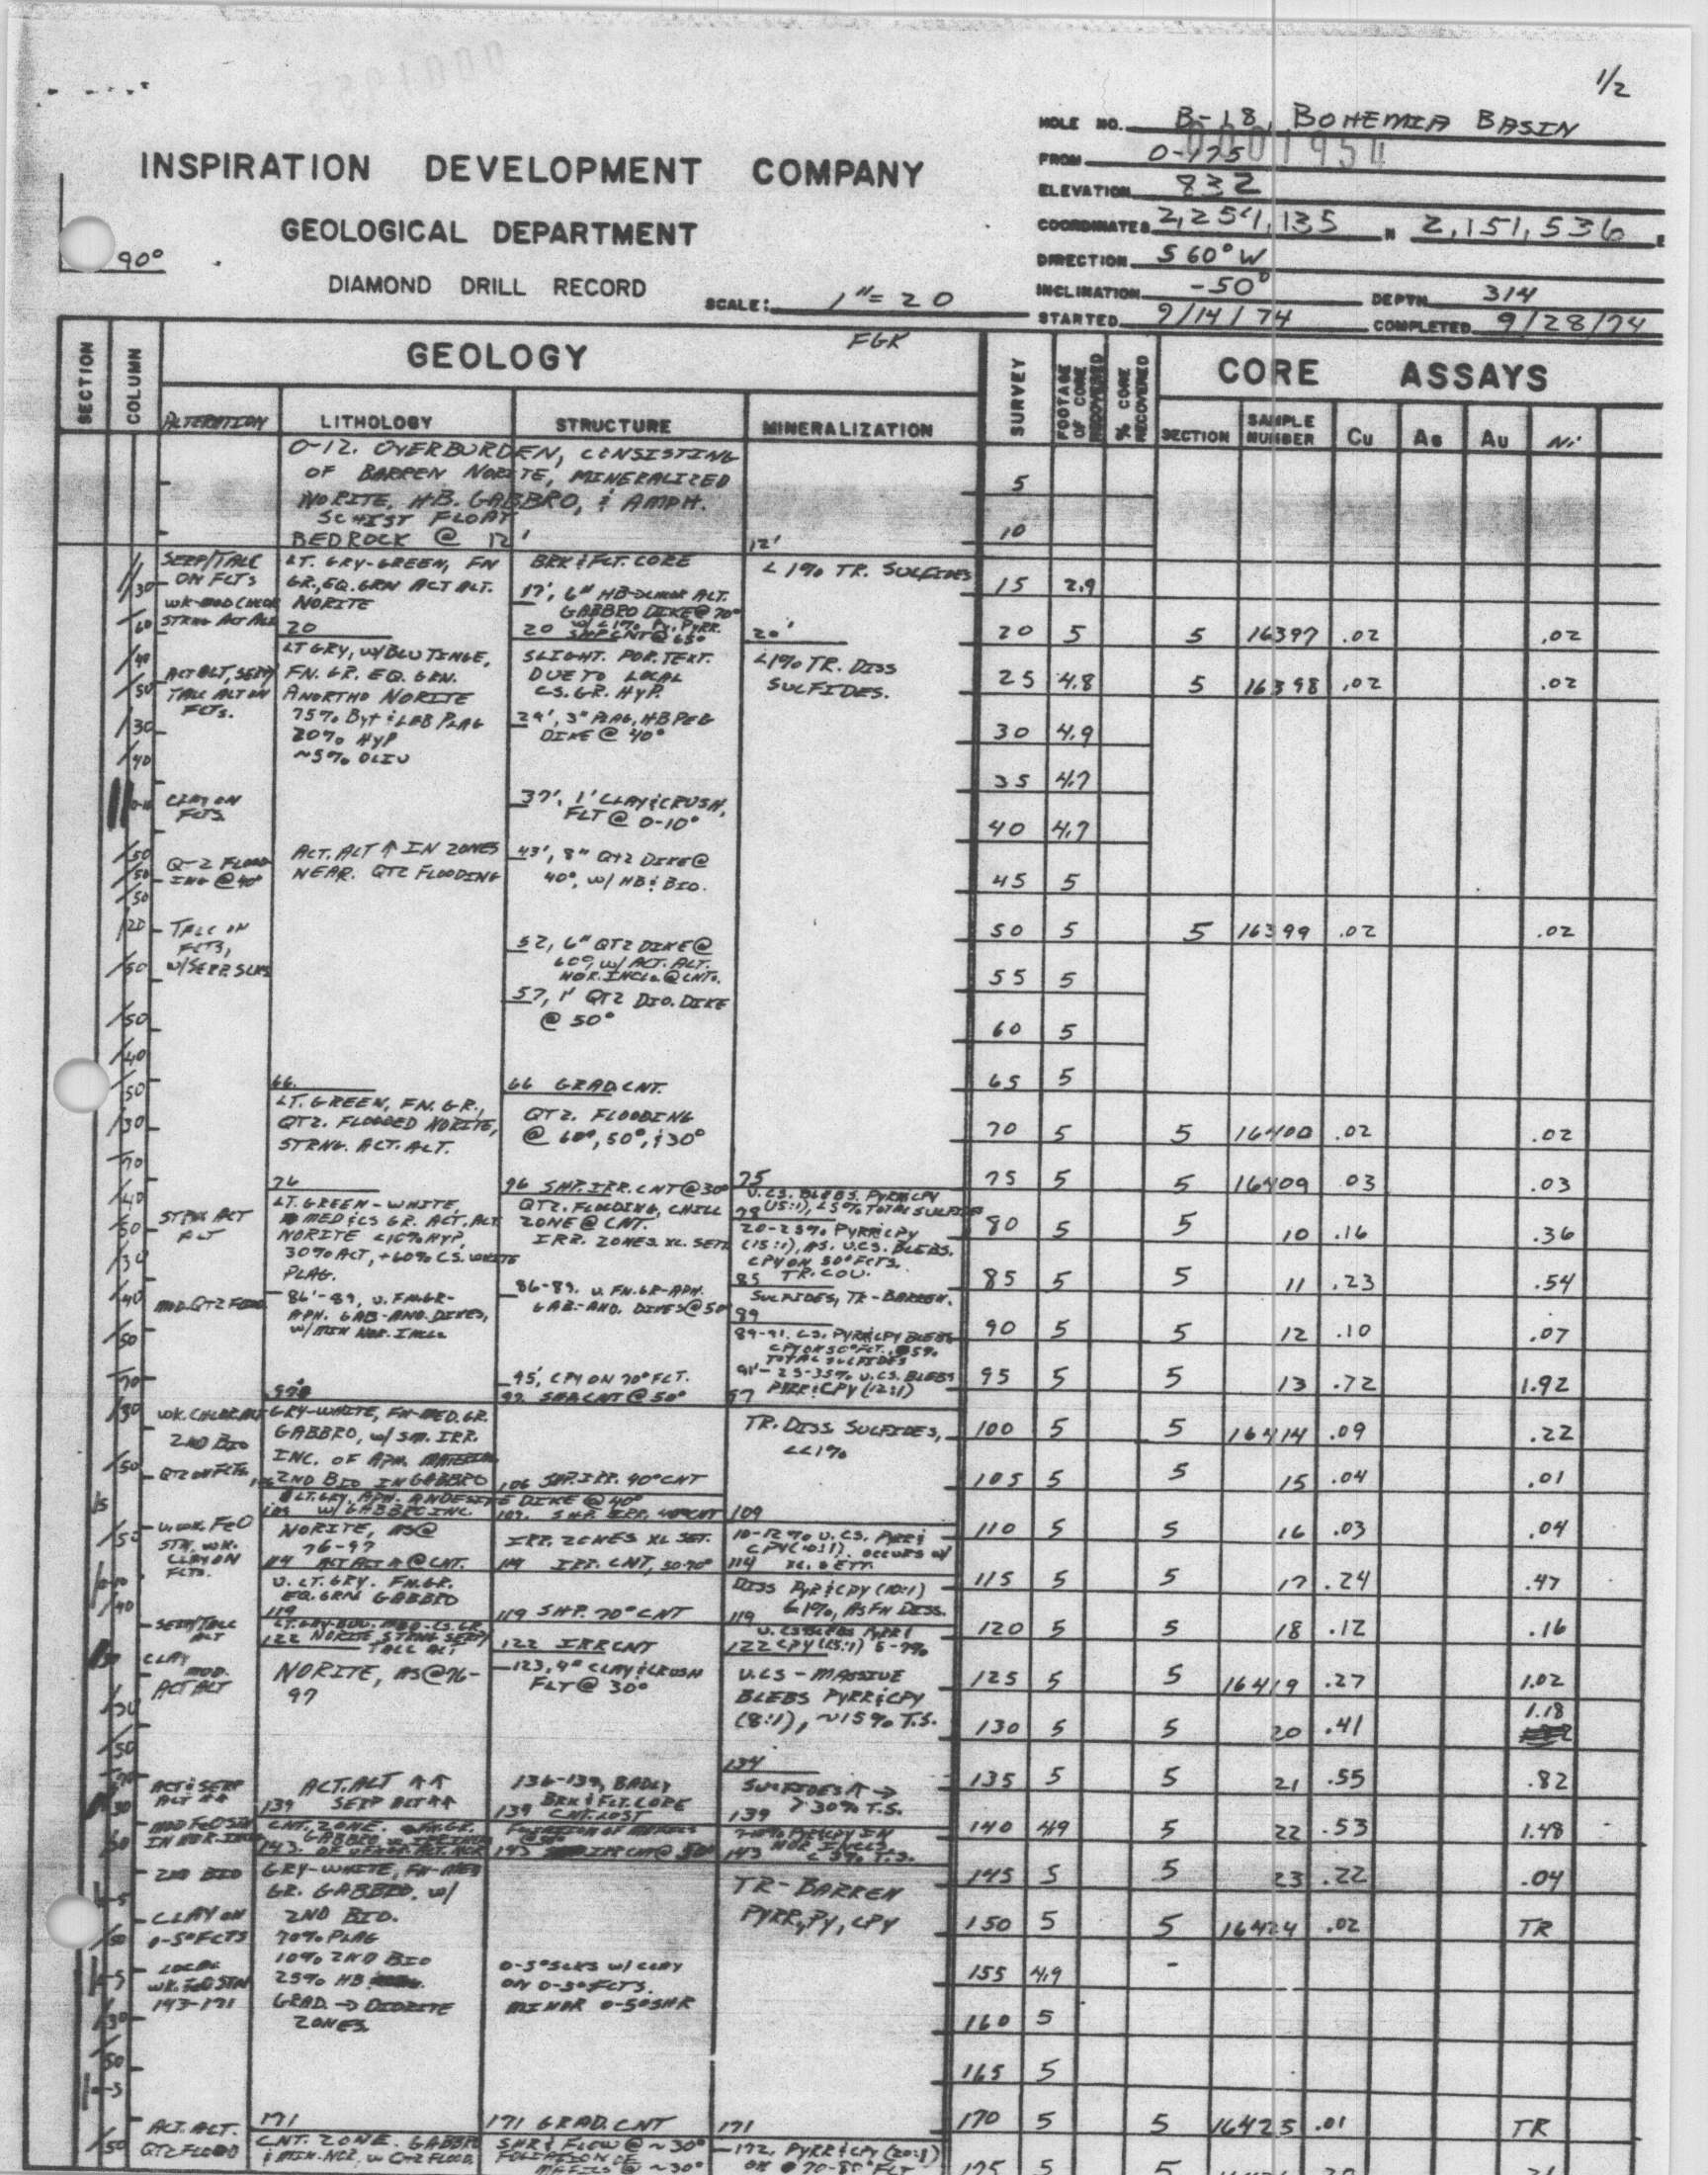 1/2
HOLE NO. B-18, BOHEMIA BASIN
0001954
FROM 0-175
ELEVATION 832
COORDINATES 2,254,135 N 2,151,536 E
DIRECTION S 60° W
INCLINATION -50° DEPTH 314
STARTED 9/14/74 COMPLETED 9/28/74
INSPIRATION DEVELOPMENT COMPANY
GEOLOGICAL DEPARTMENT
90°
DIAMOND DRILL RECORD
SCALE: 1"=20
SECTION
COLUMN
GEOLOGY
FGK
SURVEY
FOOTAGE OF CORE RECOVERED
% CORE RECOVERED
CORE ASSAYS
ALTERATION LITHOLOGY STRUCTURE MINERALIZATION
SECTION SAMPLE NUMBER Cu As Au Ni
0-12. OVERBURDEN, CONSISTING
OF BARREN NORITE, MINERALIZED
NORITE, HB. GABBRO, & AMPH.
SCHIST FLOAT
BEDROCK @ 12'
SERP/TALC
ON FLTS
WK-MOD CHLOR
STRNG ACT ALT
ACT ALT, SERP/
TALC ALT ON
FLTS.
CLAY ON
FLTS.
QTZ FLOOD
ING @ 40°
TALC ON
FLTS,
W/SERP. SLKS
STRNG ACT
ALT
MOD. QTZ FLOOD
WK. CHLOR. ALT
2ND BIO
QTZ ON FLTS.
V. WK. FeO
STN. WK.
CLAY ON
FLTS.
SERP/TALC
ALT
CLAY
MOD.
ACT ALT
ACT & SERP
ALT ↑↑
MOD FeO STN
IN NOR. INCL
2ND BIO
CLAY ON
0-5° FLTS
LOCAL
WK. FeO STN
143-171
ACT. ALT.
QTZ FLOOD
LT. GRY-GREEN, FN
GR., EQ. GRN ACT ALT.
NORITE
20
LT GRY, W/BLU TINGE,
FN. GR. EQ. GRN.
ANORTHO NORITE
75% Byt & LAB PLAG
20% HYP
~5% OLIV
ACT. ALT ↑ IN ZONES
NEAR. QTZ FLOODING
66.
LT. GREEN, FN. GR.,
QTZ. FLOODED NORITE,
STRNG. ACT. ALT.
76
LT. GREEN-WHITE,
MED & CS GR. ACT. ALT
NORITE <10% HYP,
30% ACT, +60% CS. WHITE
PLAG.
86'-89, V. FN. GR-
APH. GAB-AND. DIKES,
W/MIN NOR. INCL.
97
GRY-WHITE, FN-MED. GR.
GABBRO, W/ SM. IRR.
INC. OF APH. MATERIAL
106 2ND BIO IN GABBRO
LT. GRY. APH. ANDESITE DIKE @ 40°
109 W/ GABBRO INC.
NORITE, AS @
76-97
114 ACT ALT ↑ @ CNT.
V. LT. GRY. FN. GR.
EQ. GRN GABBRO
119
122 NORITE STRNG SERP/
TALC ALT
NORITE, AS @ 76-
97
ACT. ALT ↑↑
139 SERP ALT ↑↑
CNT. ZONE. FN. GR.
143.
GRY-WHITE, FN-MED
GR. GABBRO. W/
2ND BIO.
70% PLAG
10% 2ND BIO
25% HB
GRAD → DIORITE
ZONES.
171
CNT. ZONE. GABBRO
& MIN. NOR, W QTZ FLOOD.
BRK & FLT. CORE
17', 6" HB-CHLOR ALT.
GABBRO DIKE @ 70°
W/<1% PY, PYRR.
20 SHP CNT @ 65°
SLIGHT. POR. TEXT.
DUE TO LOCAL
CS. GR. HYP.
29', 3" PLAG, HB PEG
DIKE @ 40°
37', 1' CLAY & CRUSH,
FLT @ 0-10°
43', 8" QTZ DIKE @
40°, W/ HB & BIO.
52, 6" QTZ DIKE @
60°, W/ ACT. ALT.
NOR. INCL. @ CNT.
57, 1' QTZ DIO. DIKE
@ 50°
66 GRAD. CNT.
QTZ. FLOODING
@ 60°, 50°, & 30°
76 SHP. IRR. CNT @ 30°
QTZ. FLOODING, CHILL
ZONE @ CNT.
IRR. ZONES XL SETT
86-89. V. FN. GR-APH.
GAB-AND. DIKES @ 50°
95', CPY ON 70° FLT.
97. SHR CNT @ 50°
106 SHP. IRR. 40° CNT
109. SHP. IRR. 40° CNT
IRR. ZONES XL SET.
114 IRR. CNT, 50-70°
119 SHP. 70° CNT
122 IRR CNT
123, 4" CLAY & CRUSH
FLT @ 30°
136-139, BADLY
BRK & FLT. CORE
139 CNT. LOST
FOLIATION OF MAFICS
143 IRR CNT @ 50°
0-5° SLKS W/ CLAY
ON 0-5° FLTS.
MINOR 0-5° SHR
171 GRAD. CNT
SHR & FLOW @ ~30°
FOLIATION OF
MAFICS @ ~30°
12'
<1% TR. SULFIDES
20'
<1% TR. DISS
SULFIDES.
75
V. CS. BLEBS. PYRR & CPY
78 (15:1), <5% TOTAL SULFIDES
20-25% PYRR & CPY
(15:1), AS. V. CS. BLEBS.
CPY ON 50° FLTS.
85 TR. COV.
SULFIDES, TR-BARREN.
89
89-91. CS. PYRR & CPY BLEBS
CPY ON 50° FLT. 5%
TOTAL SULFIDES
91'-25-35% V. CS. BLEBS
97 PYRR & CPY (12:1)
TR. DISS. SULFIDES,
<<1%
109
10-12% V. CS. PYRR &
CPY (10:1). OCCURS W/
114 XL. SETT.
DISS PYR & CPY (10:1)
119 <1%, AS FN DISS.
V. CS BLEBS PYRR &
122 CPY (15:1) 5-7%
V. CS - MASSIVE
BLEBS PYRR & CPY
(8:1), ~15% T.S.
134
SULFIDES ↑ →
139 >30% T.S.
143 NOR INCLS. <5% T.S.
TR-BARREN
PYRR, PY, CPY
171
172, PYRR & CPY (20:1)
ON 70-80° FLT
5
10
15 2.9
20 5 5 16397 .02 .02
25 4.8 5 16398 .02 .02
30 4.9
35 4.7
40 4.7
45 5
50 5 5 16399 .02 .02
55 5
60 5
65 5
70 5 5 16400 .02 .02
75 5 5 16409 .03 .03
80 5 5 10 .16 .36
85 5 5 11 .23 .54
90 5 5 12 .10 .07
95 5 5 13 .72 1.92
100 5 5 16414 .09 .22
105 5 5 15 .04 .01
110 5 5 16 .03 .04
115 5 5 17 .24 .47
120 5 5 18 .12 .16
125 5 5 16419 .27 1.02
130 5 5 20 .41 1.18
135 5 5 21 .55 .82
140 4.9 5 22 .53 1.48
145 5 5 23 .22 .04
150 5 5 16424 .02 TR
155 4.9 -
160 5
165 5
170 5 5 16425 .01 TR
175 5 5